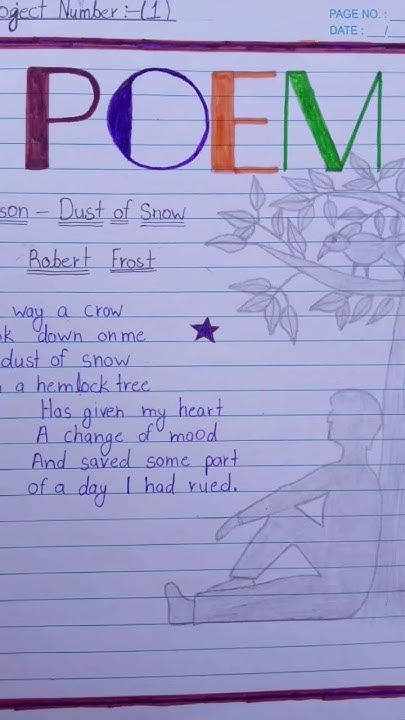 oject Number :-(1)
PAGE NO. :
DATE : / /
POEM
son - Dust of Snow
Robert Frost
way a crow
ok down on me
dust of snow
a hemlock tree
Has given my heart
A change of mood
And saved some part
of a day I had rued.